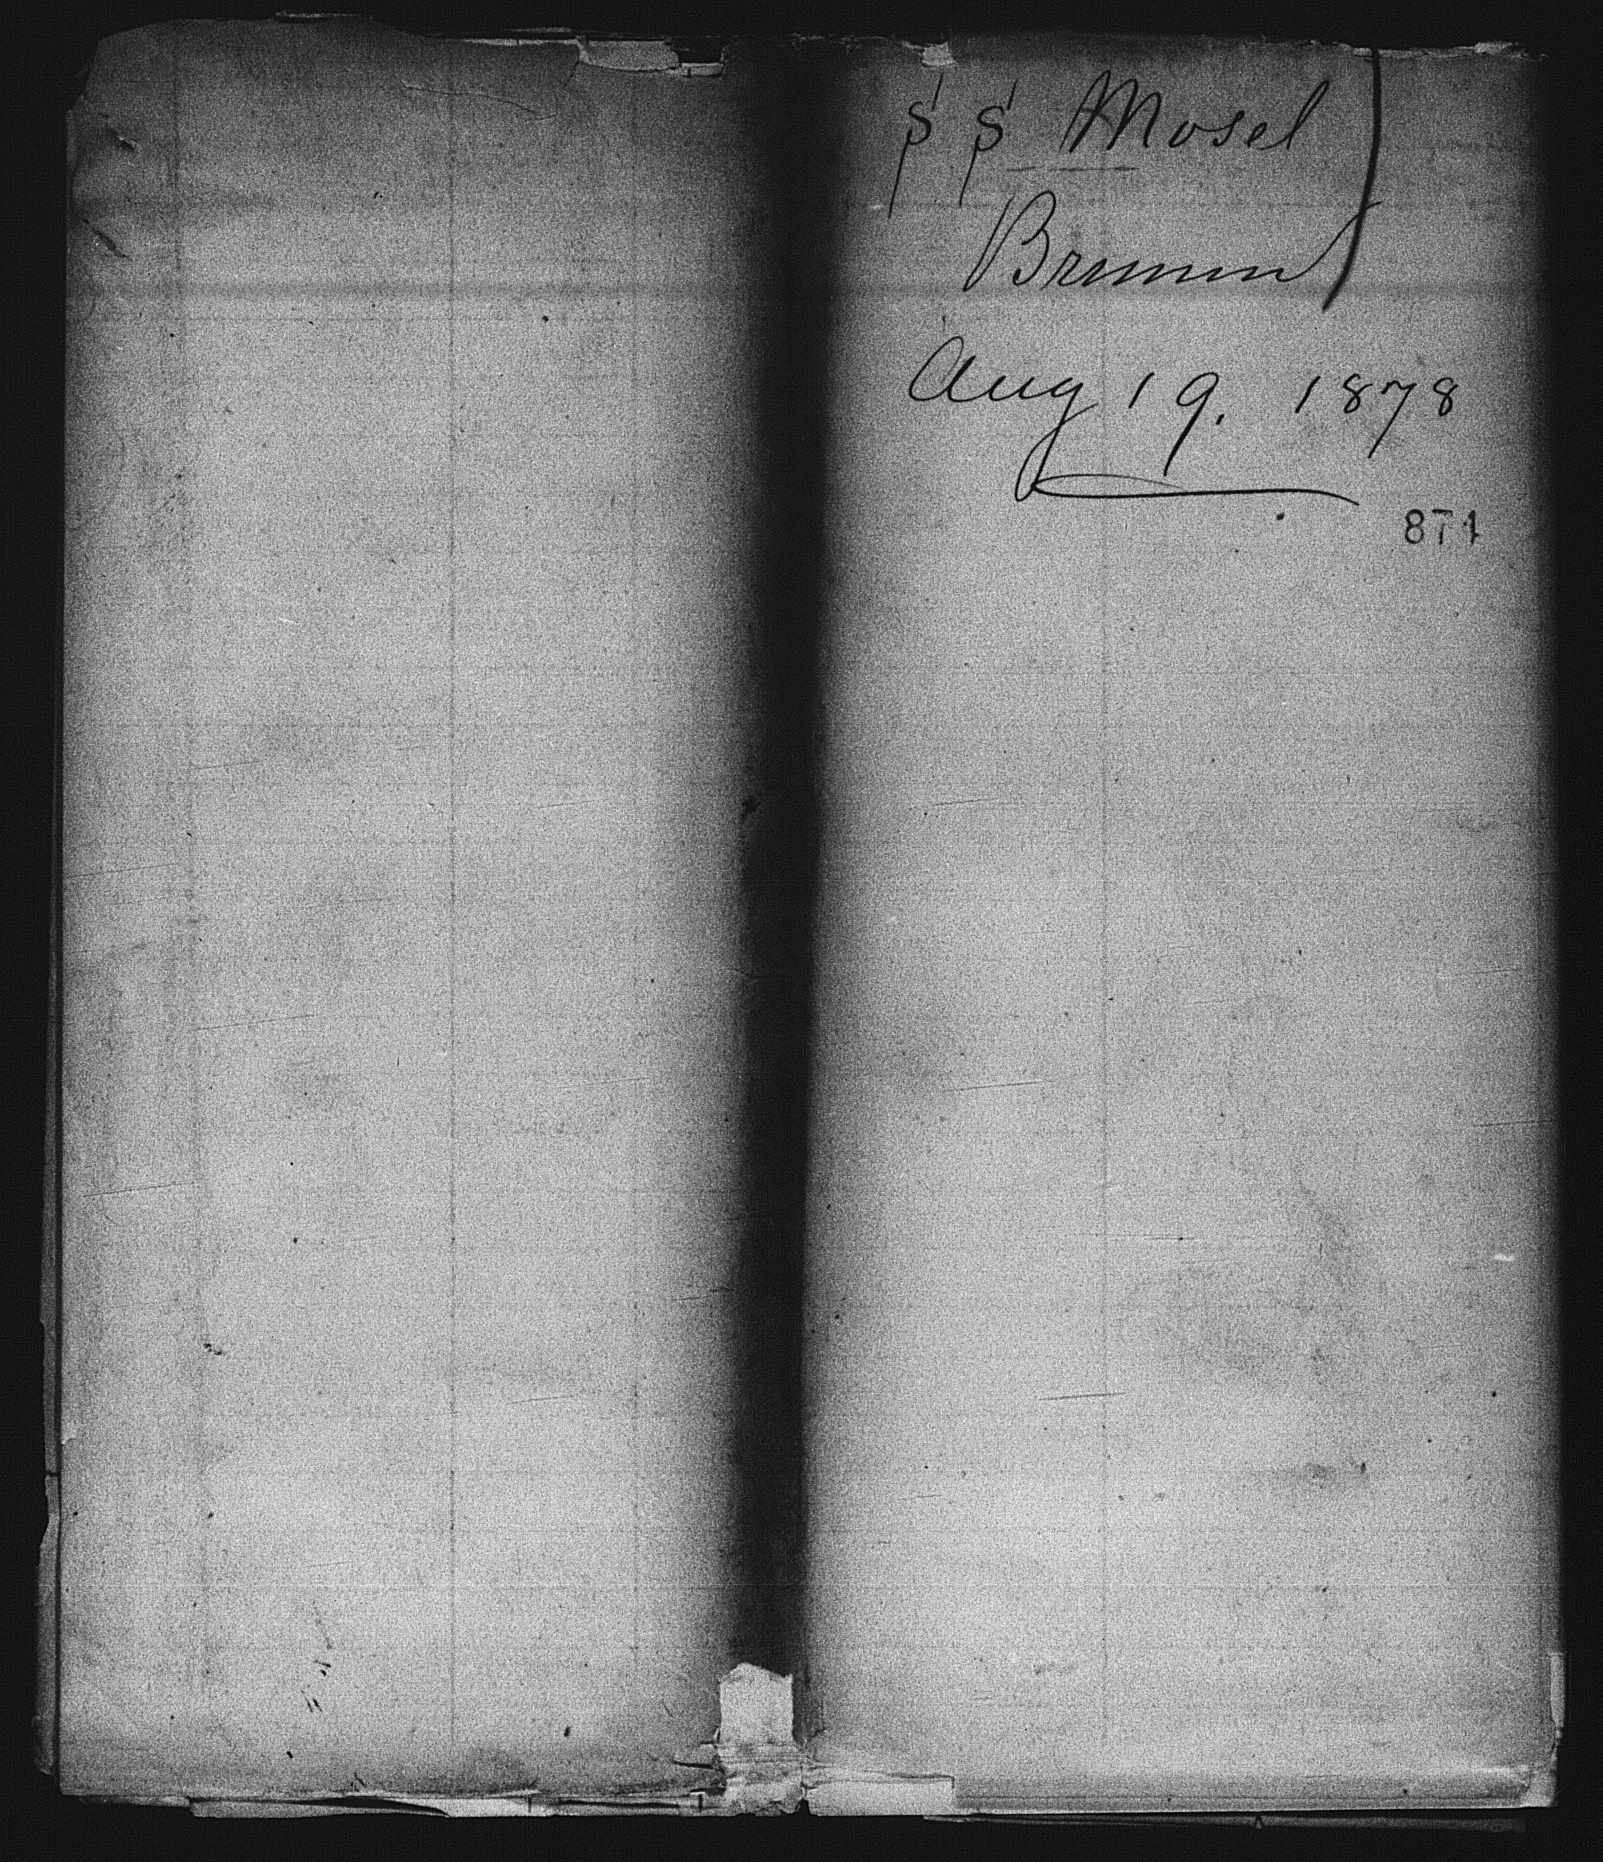 S S Mosel
Bremen
Aug 19. 1878
871